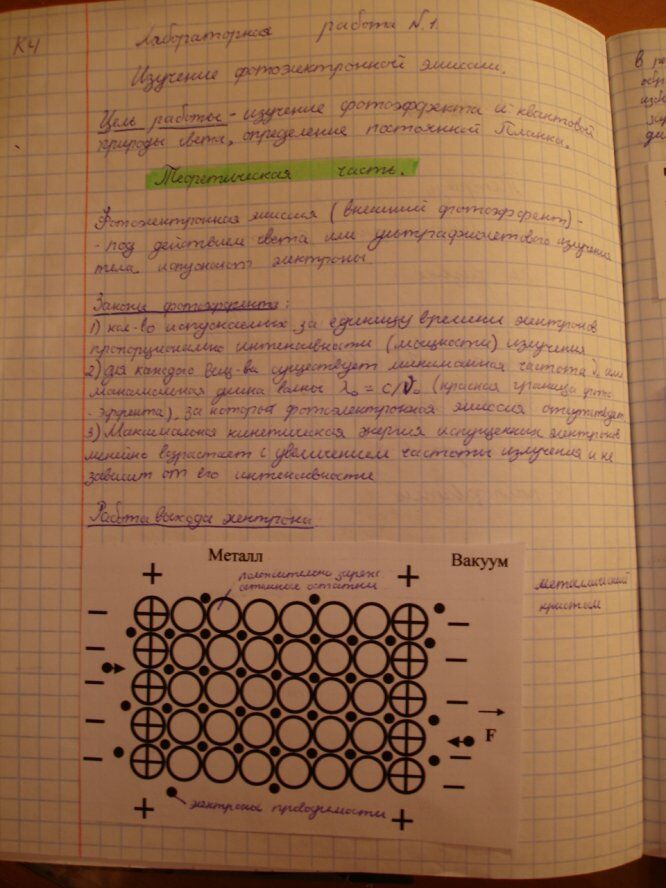 КЧ
Лабораторная работа №1.
Изучение фотоэлектронной эмиссии.
Цель работы - изучение фотоэффекта и квантовой
природы света, определение постоянной Планка.
Теоретическая часть.
Фотоэлектронная эмиссия (внешний фотоэффект) -
- под действием света или ультрафиолетового излучения
тела испускают электроны
Законы фотоэффекта:
1) кол-во испускаемых за единицу времени электронов
пропорционально интенсивности (мощности) излучения
2) для каждого вещ-ва существует минимальная частота ν₀ или
максимальная длина волны λ₀ = c/ν₀ (красная граница фото
-эффекта), за которой фотоэлектронная эмиссия отсутствует
3) Максимальная кинетическая энергия испущенных электронов
линейно возрастает с увеличением частоты излучения и не
зависит от его интенсивности
Работа выхода электрона
Металл
Вакуум
положительно заряж.
остатки
металлический
кристалл
F
электроны проводимости